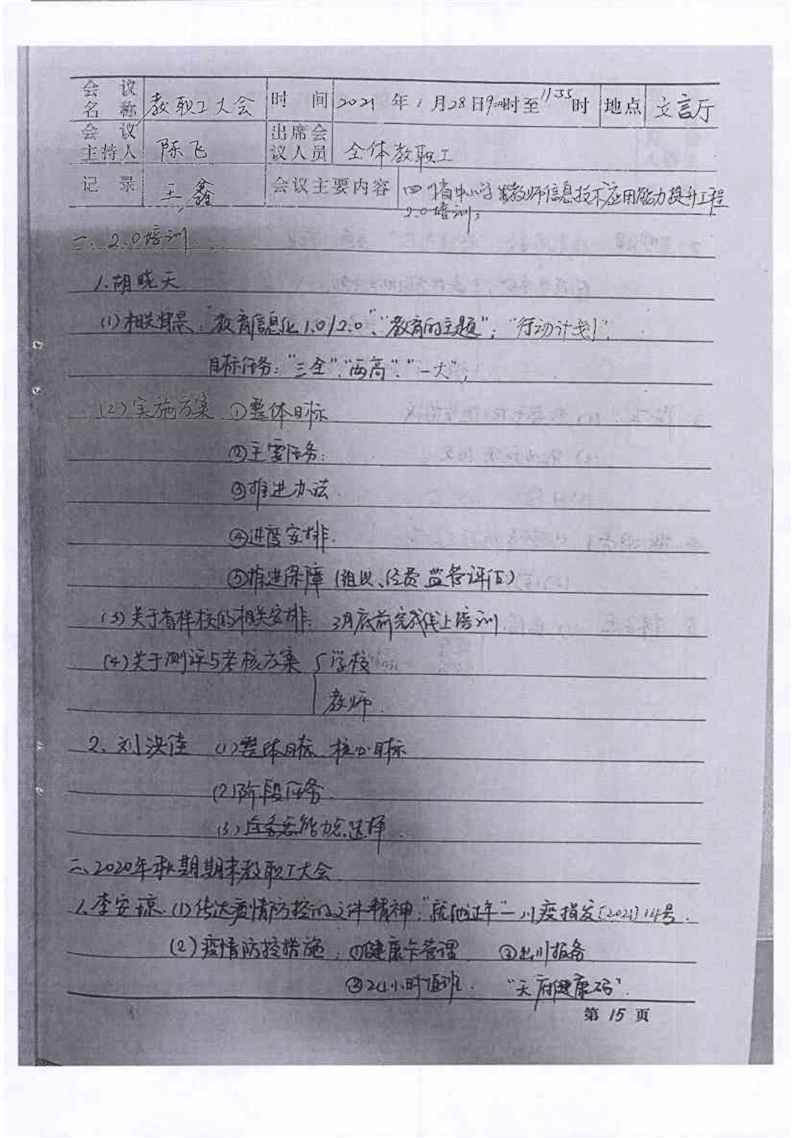 会议名称 教职工大会 时间 2021年1月28日9:00时至11:55时 地点 文言厅
会议主持人 陈飞 出席会议人员 全体教职工
记录 王鑫 会议主要内容 四川省中小学教师信息技术应用能力提升工程
2.0培训;
一、2.0培训.
1.胡晓天
(1)相关背景:"教育信息化1.0/2.0","教育的主题";"行动计划";
目标任务:"三全"."两高"."一大";
(2)实施方案 ①整体目标
②主要任务:
③推进办法.
④进度安排.
⑤推进保障(组织、经费、监管评估)
(3)关于省样校的相关安排:3月底前完成线上培训
(4)关于测评与考核方案 { 学校
教师.
2、刘洪佳 (1)整体目标、核心目标
(2)阶段任务
(3)任务与能力点选择.
二、2020年秋期期末教职工大会
1.李安琼.(1)传达疫情防控的文件精神:"就地过年"—川疫指发[2021]14号.
(2)疫情防控措施:①健康卡管理 ②出川报备
③24小时值班. "天府健康码".
第15页